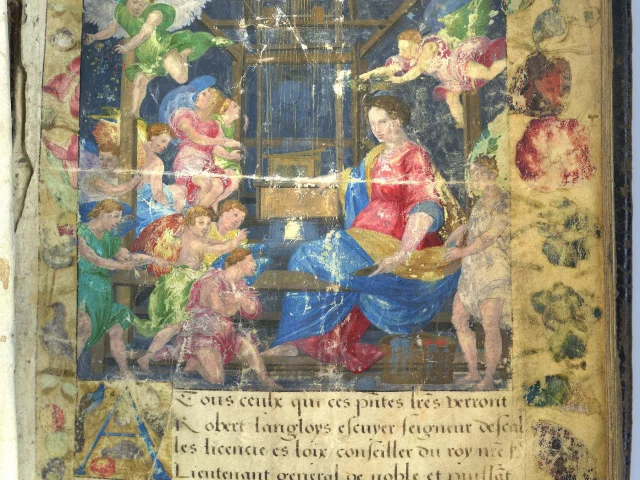 A Tous ceulx qui ces pn̄tes lr̄es verront
Robert langloys escuyer seigneur descal
les licencie es loix / conseiller du roy nr̄e s
Lieutenant general de noble et puissāt